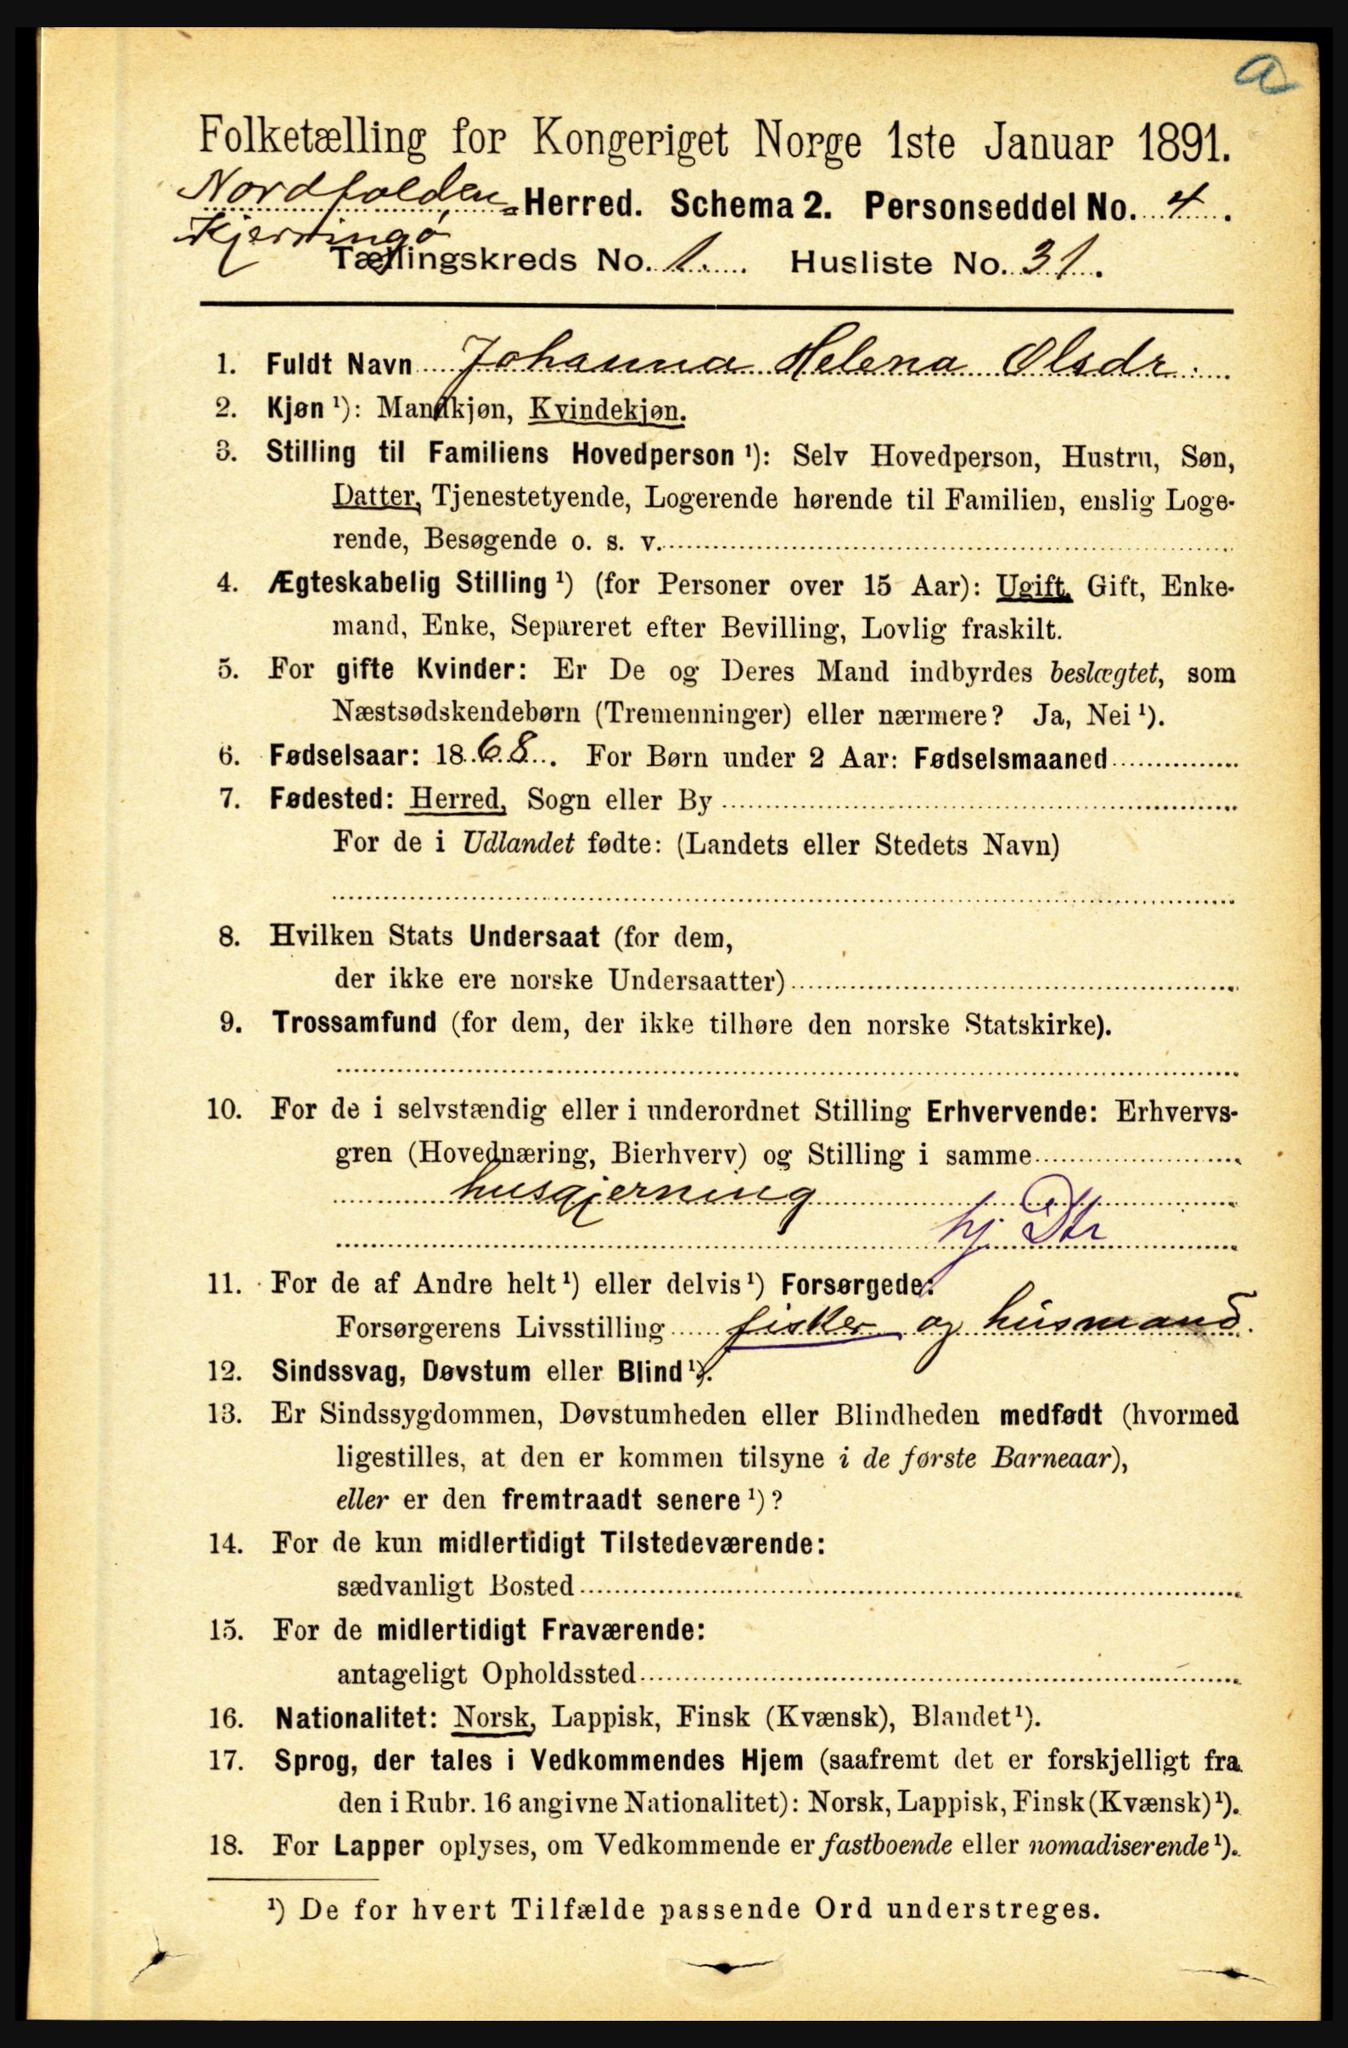 a
Folketælling for Kongeriget Norge 1ste Januar 1891.
Nordfolden
Kjerringö
Herred. Schema 2. Personseddel No. 4.
Tællingskreds No. 1. Husliste No. 31.
1. Fuldt Navn Johanna Helena Olsdr.
2. Kjøn ¹): Mandkjøn, Kvindekjøn.
3. Stilling til Familiens Hovedperson ¹): Selv Hovedperson, Hustru, Søn,
Datter, Tjenestetyende, Logerende hørende til Familien, enslig Loge-
rende, Besøgende o. s. v.
4. Ægteskabelig Stilling ¹) (for Personer over 15 Aar): Ugift, Gift, Enke-
mand, Enke, Separeret efter Bevilling, Lovlig fraskilt.
5. For gifte Kvinder: Er De og Deres Mand indbyrdes beslægtet, som
Næstsødskendebørn (Tremenninger) eller nærmere? Ja, Nei ¹).
6. Fødselsaar: 1868. For Børn under 2 Aar: Fødselsmaaned
7. Fødested: Herred, Sogn eller By
For de i Udlandet fødte: (Landets eller Stedets Navn)
8. Hvilken Stats Undersaat (for dem,
der ikke ere norske Undersaatter)
9. Trossamfund (for dem, der ikke tilhøre den norske Statskirke).
10. For de i selvstændig eller i underordnet Stilling Erhvervende: Erhvervs-
gren (Hovednæring, Bierhverv) og Stilling i samme
husgjerning
hj. Dtr
11. For de af Andre helt ¹) eller delvis ¹) Forsørgede:
Forsørgerens Livsstilling fisker og husmand.
12. Sindssvag, Døvstum eller Blind ¹).
13. Er Sindssygdommen, Døvstumheden eller Blindheden medfødt (hvormed
ligestilles, at den er kommen tilsyne i de første Barneaar),
eller er den fremtraadt senere ¹)?
14. For de kun midlertidigt Tilstedeværende:
sædvanligt Bosted
15. For de midlertidigt Fraværende:
antageligt Opholdssted
16. Nationalitet: Norsk, Lappisk, Finsk (Kvænsk), Blandet ¹).
17. Sprog, der tales i Vedkommendes Hjem (saafremt det er forskjelligt fra
den i Rubr. 16 angivne Nationalitet): Norsk, Lappisk, Finsk (Kvænsk) ¹).
18. For Lapper oplyses, om Vedkommende er fastboende eller nomadiserende ¹).
¹) De for hvert Tilfælde passende Ord understreges.